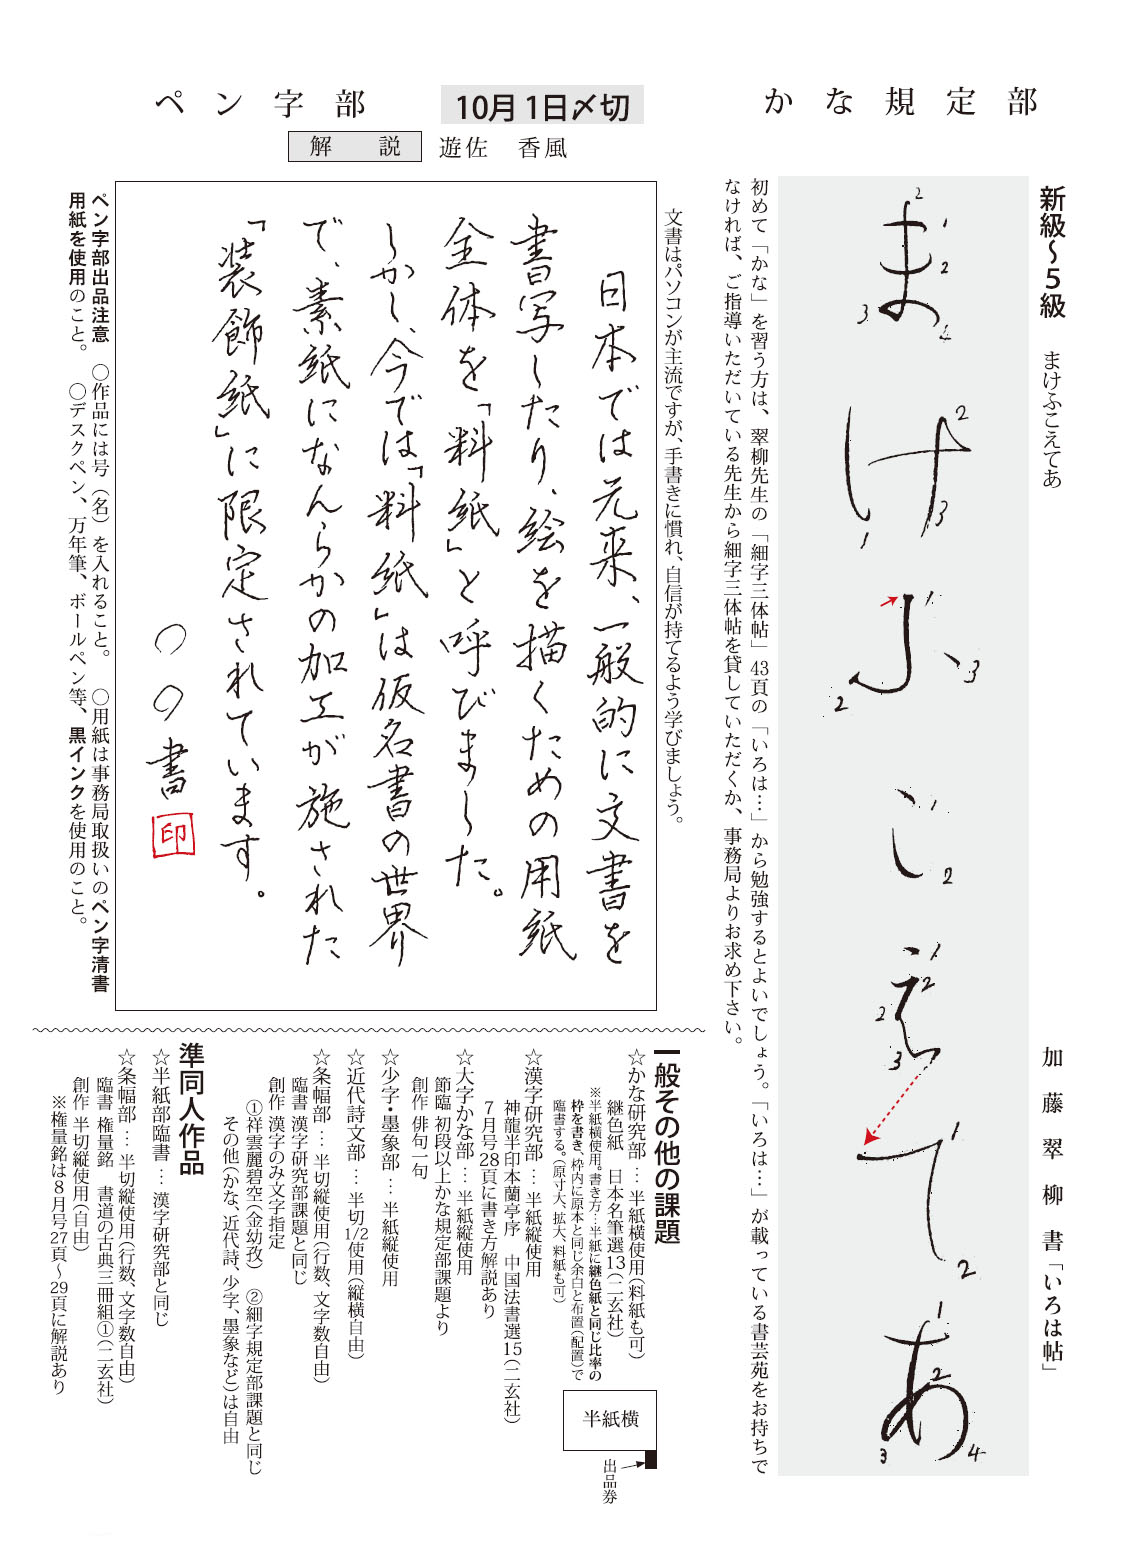 かな規定部
新級〜5級　まけふこえてあ
加藤翠柳書「いろは帖」
2
1
2
3
4
まけふこえてあ
2
3
1
1
2
3
2
1
2
2
3
1
2
1
2
3
4
初めて「かな」を習う方は、翠柳先生の「細字三体帖」43頁の「いろは…」から勉強するとよいでしょう。「いろは…」が載っている書芸苑をお持ちで
なければ、ご指導いただいている先生から細字三体帖を貸していただくか、事務局よりお求め下さい。
10月1日〆切
ペン字部
解説　遊佐　香風
文書はパソコンが主流ですが、手書きに慣れ、自信が持てるよう学びましょう。
日本では元来、一般的に文書を
書写したり、絵を描くための用紙
全体を「料紙」と呼びました。
しかし、今では「料紙」は仮名書の世界
で、素紙になんらかの加工が施された
「装飾紙」に限定されています。
〇〇書
印
ペン字部出品注意　〇作品には号（名）を入れること。　〇用紙は事務局取扱いのペン字清書
用紙を使用のこと。　〇デスクペン、万年筆、ボールペン等、黒インクを使用のこと。
一般その他の課題
☆かな研究部…半紙横使用（料紙も可）
継色紙　日本名筆選13（二玄社）
※半紙横使用。書き方…半紙に継色紙と同じ比率の
枠を書き、枠内に原本と同じ余白と布置（配置）で
臨書する。（原寸大、拡大、料紙も可）
半紙横
出品券
☆漢字研究部…半紙縦使用
神龍半印本蘭亭序　中国法書選15（二玄社）
7月号28頁に書き方解説あり
☆大字かな部…半紙縦使用
節臨 初段以上かな規定部課題より
創作 俳句一句
☆少字・墨象部…半紙縦使用
☆近代詩文部…半切1/2使用（縦横自由）
☆条幅部…半切縦使用（行数、文字数自由）
臨書 漢字研究部課題と同じ
創作 漢字のみ文字指定
①祥雲麗碧空（金幼孜）　②細字規定部課題と同じ
その他（かな、近代詩、少字、墨象など）は自由
準同人作品
☆半紙部臨書…漢字研究部と同じ
☆条幅部…半切縦使用（行数、文字数自由）
臨書 権量銘　書道の古典三冊組①（二玄社）
創作 半切縦使用（自由）
※権量銘は8月号27頁〜29頁に解説あり